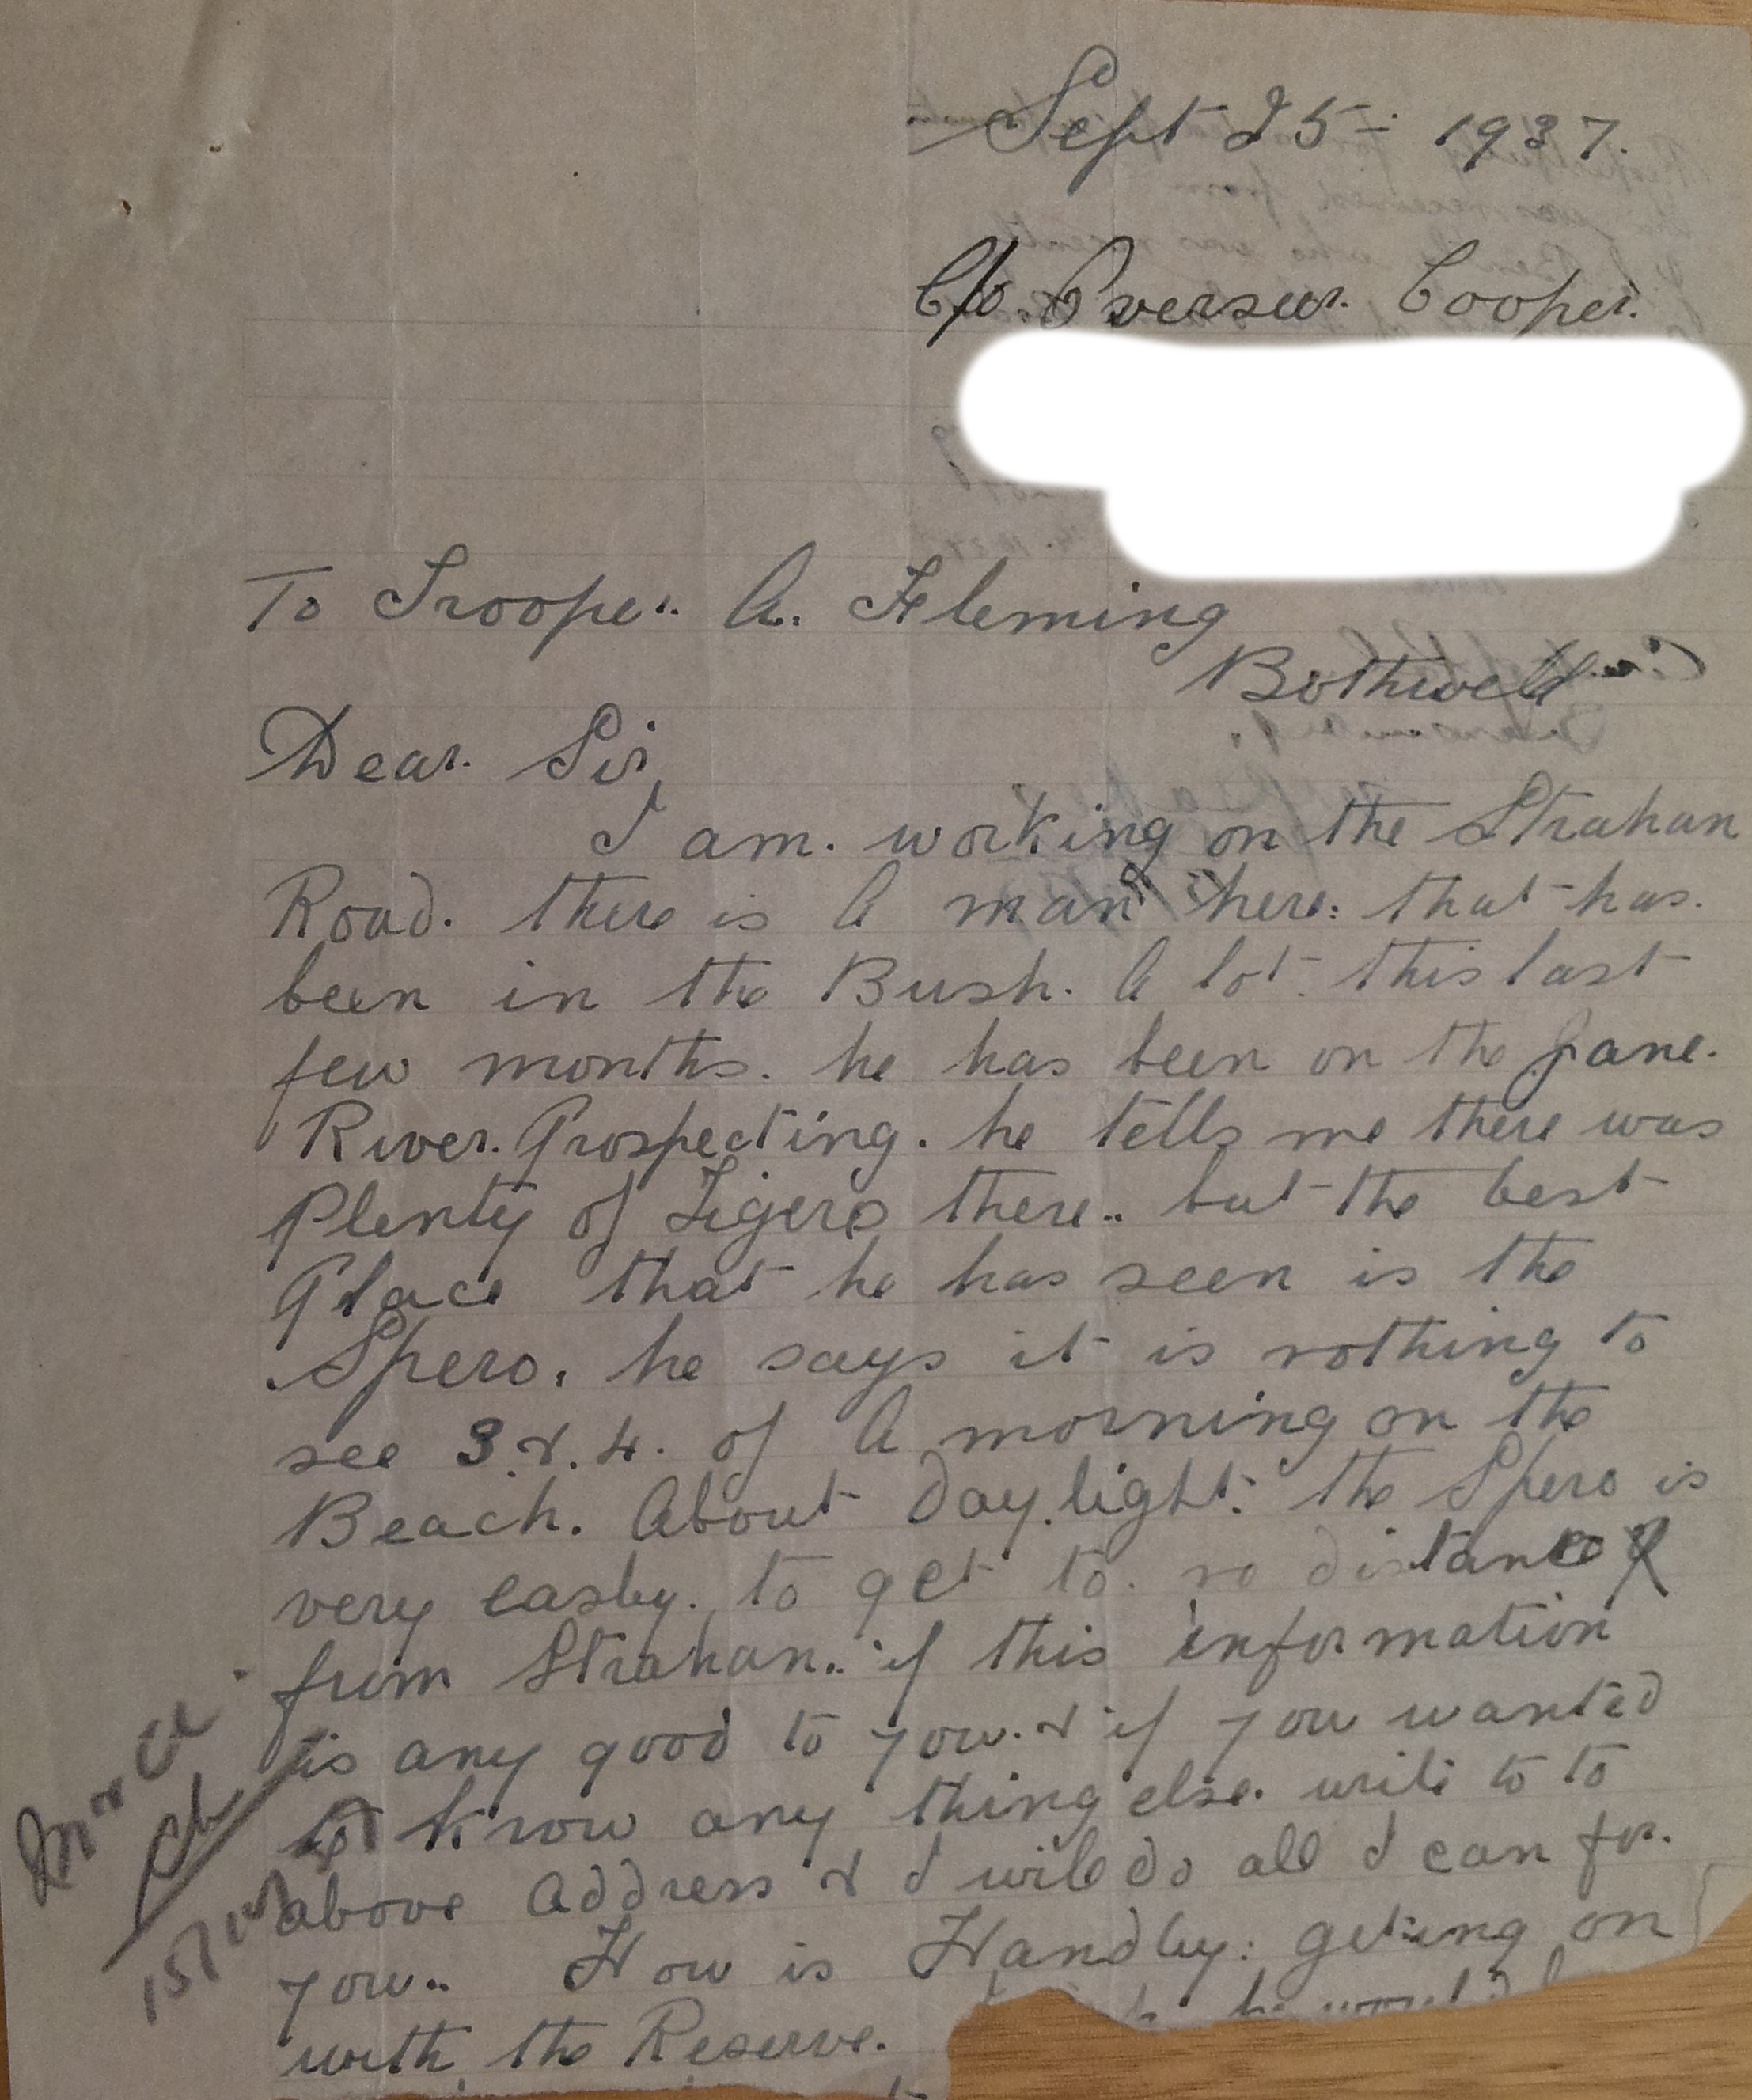 Sept 25 - 1937.
C/o. Overseer. Cooper.
To Trooper. A. Fleming
Bothwell
Dear. Sir,
I am. working on the Strahan
Road. there is A man here: that has.
been in the Bush. A lot. this last
few months. he has been on the Jane.
River. Prospecting. he tells me there was
Plenty of Tigers there.. but the best
Place that he has seen is the
Spero. he says it is nothing to
see 3.&.4. of A morning on the
Beach. About Day.light: the Spero is
very easly. to get to. no distance
from Strahan.. if this information
is any good to you. & if you wanted
to know any thing else. write to to
above Address & I will do all I can for.
you.. How is Handly: geting on
with the Reserve.